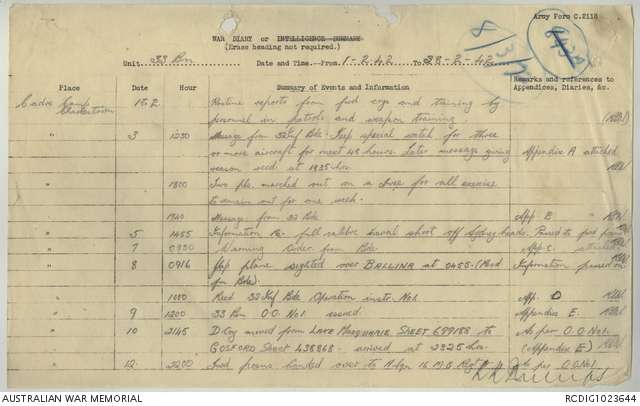 Army Form C.2118
WAR DIARY or INTELLIGENCE SUMMARY
(Erase heading not required.)
8/3/7
Unit 33 Bn Date and Time—From 1-2-42 To 28-2-42
Place Date Hour Summary of Events and Information Remarks and references to Appendices, Diaries, &c.
Cadre Camp 1 & 2 Routine reports from food coys and training by
Charlestown personnel in patrols and weapon training
" 3 1230 Message from 32 Inf Bde. Keep special watch for three
or more aircraft for next 48 hours. Later message giving
reason recd at 1935 hrs. Appendix A attached
" 1800 Two pls. marched out on a for all exercise
to remain out for one week.
" 1940 Message from 32 Bde App B "
" 5 1455 Information re. full calibre naval shoot off Sydney heads. Passed to
" 7 0930 Warning Order from Bde App C. attached
" 8 0916 Jap plane sighted over BALLINA at 0455. (Recd Information passed on
fm Bde).
1000 Recd 32 Inf Bde Operation instr. No1 App. D
" 9 1200 33 Bn O.O No1 issued. Appendix E.
" 10 2145 D Coy moved from LAKE MACQUARIE SHEET 699188 to As per O.O No1.
GOSFORD SHEET 438868 - arrived at 2325 hrs. (Appendix E)
" 12 2200 handed over to 16 M.G. Regt As per O.O No1
AUSTRALIAN WAR MEMORIAL RCDIG1023644